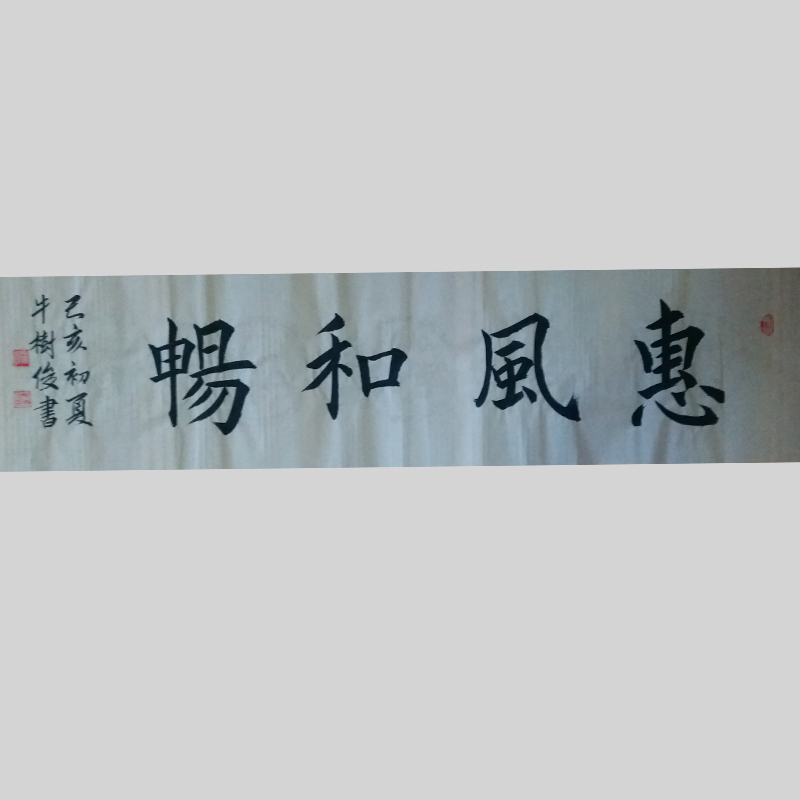 惠風和暢
己亥初夏
牛樹俊書